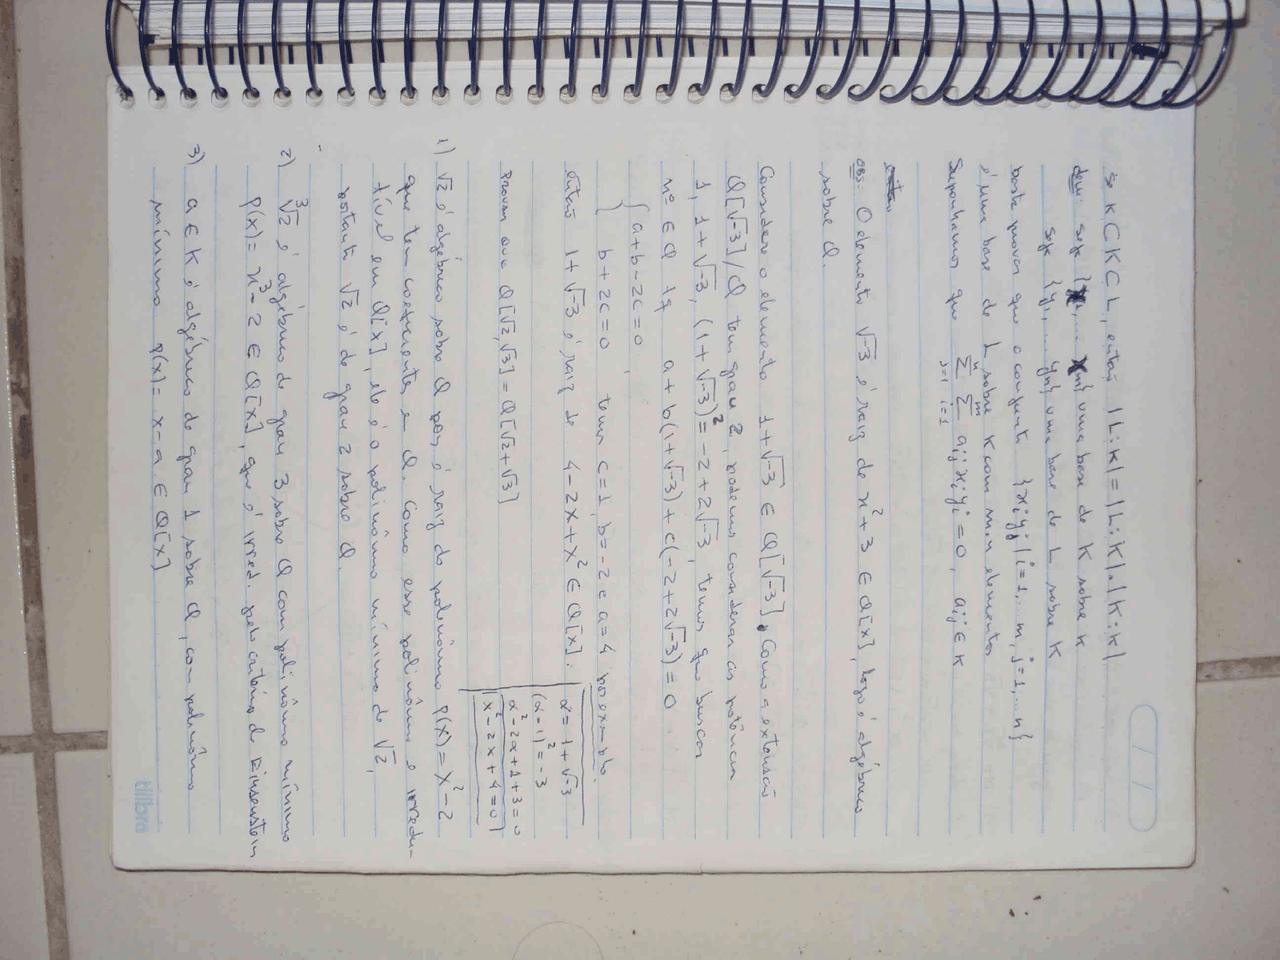 / /
se k ⊂ K ⊂ L, então |L:k| = |L:K|.|K:k|
dem: seja {x₁, ... xₘ} uma base de K sobre k
seja {y₁, ... yₙ} uma base de L sobre K
basta provar que o conjunto {xᵢyⱼ | i=1,...m, j=1,...n}
é uma base de L sobre k com m.n elementos
Suponhamos que
n m
Σ Σ aᵢⱼxᵢyⱼ = 0, aᵢⱼ ∈ k
j=1 i=1
obs: O elemento √-3 é raiz de x² + 3 ∈ Q[x], logo é algébrico
sobre Q.
Considere o elemento 1+√-3 ∈ Q[√-3]. Como a extensão
Q[√-3]/Q tem grau 2, podemos considerar as potências
1, 1+√-3, (1+√-3)² = -2+2√-3, temos que buscar
nºs ∈ Q tq a + b(1+√-3) + c(-2+2√-3) = 0
{ a+b-2c=0,
b+2c=0 temos c=1, b=-2 e a=4 por exemplo.
então 1+√-3 é raiz de 4-2x+x² ∈ Q[x].
α = 1+√-3
(α-1)² = -3
α²-2α+1+3=0
x²-2x+4=0
Provar que Q[√2,√3] = Q[√2+√3]
1) √2 é algébrico sobre Q pois é raiz do polinômio p(x) = x²-2
que tem coeficientes em Q. Como esse polinômio é irredu-
tível em Q[x], ele é o polinômio mínimo de √2,
portanto √2 é de grau 2 sobre Q.
2) ³√2 é algébrico de grau 3 sobre Q com polinômio mínimo
p(x) = x³-2 ∈ Q[x], que é irred. pelo critério de Eisenstein
3) a ∈ k é algébrico de grau 1 sobre Q, com polinômio
mínimo p(x) = x-a ∈ Q[x]
tilibra